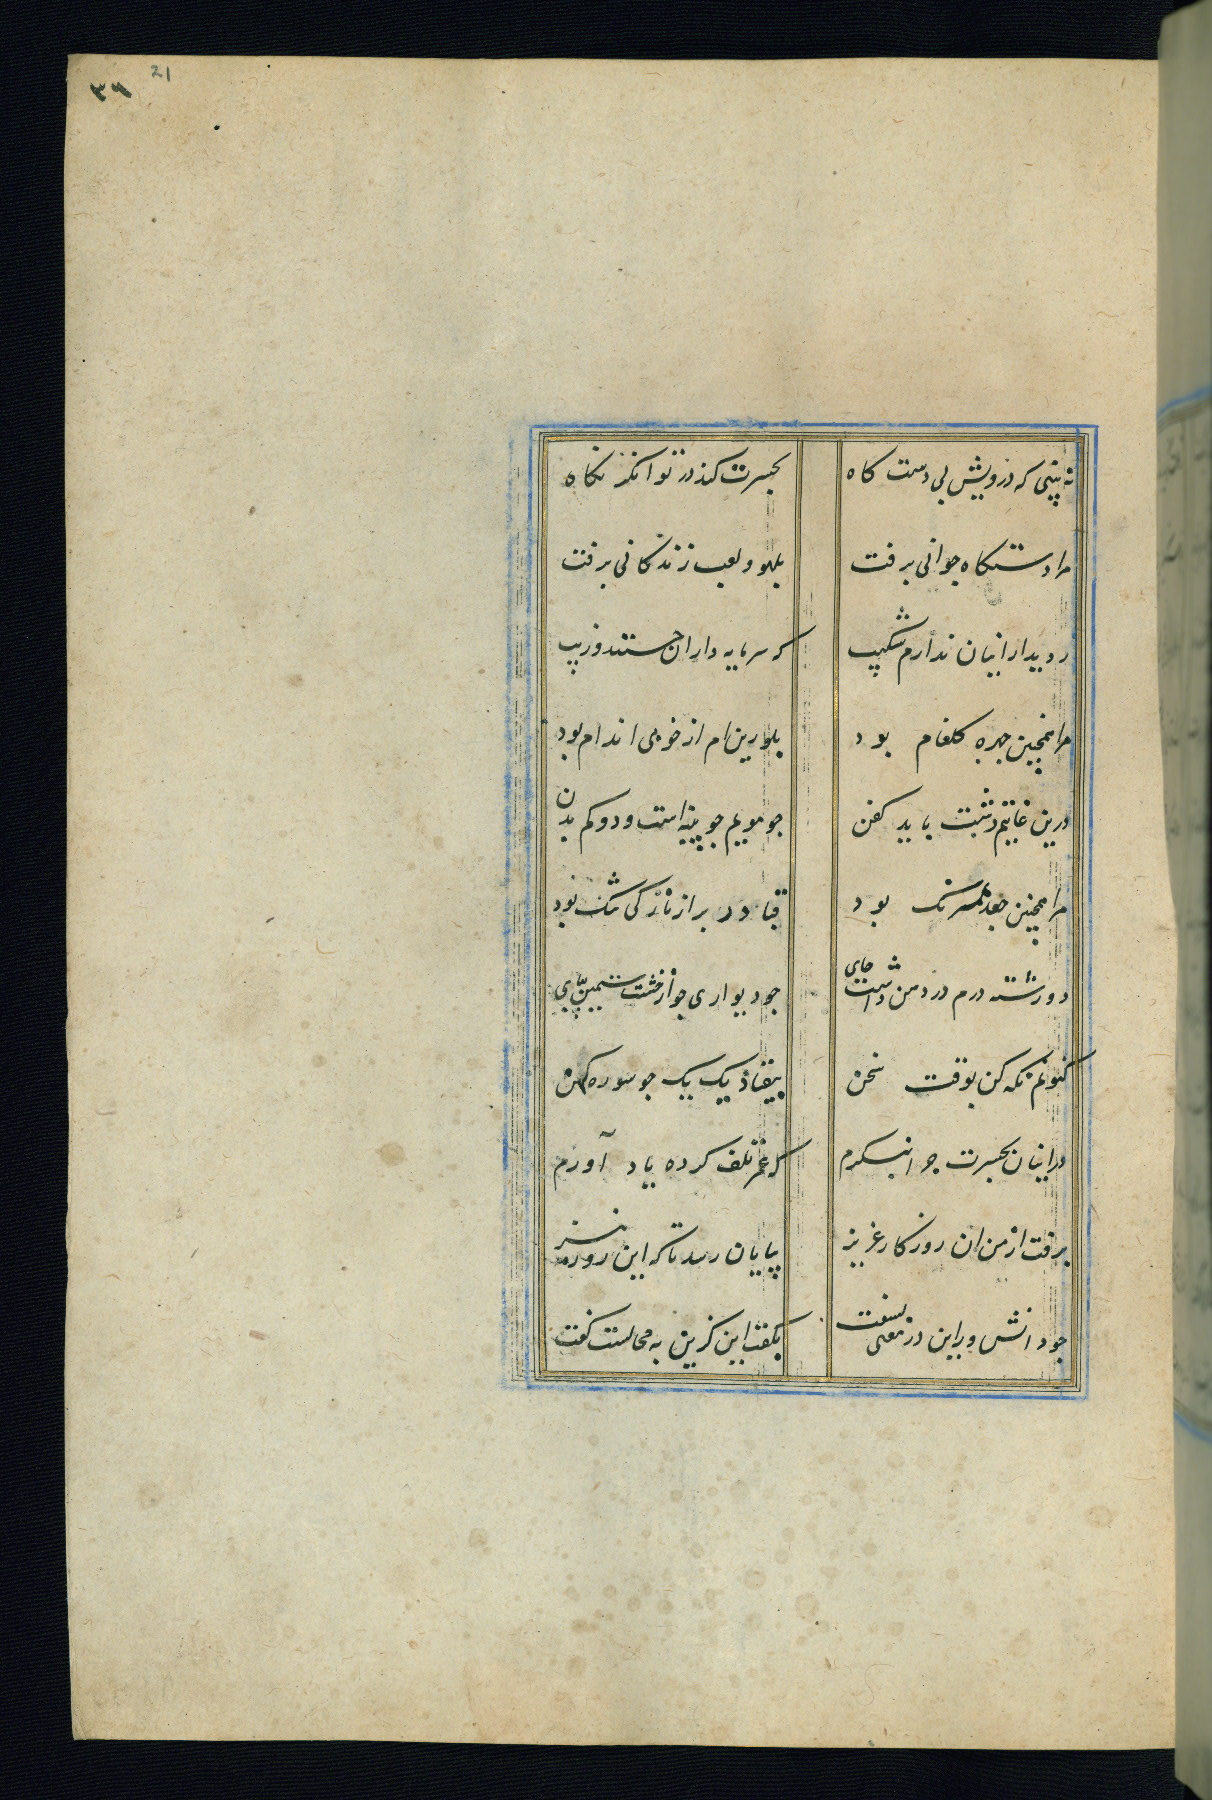 21
نه بینی که درویش بی دست کاه بحسرت کند در توانکر نکاه
مرا دستکاه جوانی برفت بلهو و لعب زندکانی برفت
ز دیدار اینان ندارم شکیب که سرمایه داران حسنند و زیب
مرا همچنین چهره کلفام بود بلورین ام از خوبی اندام بود
درین غایتم رشت باید کفن جو مویم جو پنبه است و دوکم بدن
مرا همچنین جعد شبرنک بود قبا در بر از نازکی تنک بود
دو رسته درم در دهن داشت جای جو دیواری جو از خشت سیمین بپای
کنونم نکه کن بوقت سخن بیفتاد یک یک جو سور کهن
در اینان بحسرت جرا ننکرم که عمر تلف کرده یاد آورم
برفت از من ان روزکار عزیز بپایان رسد ناکه این روز نیز
جو دانش ور این در معنی بسفت بکفت این کزین به محالست کفت